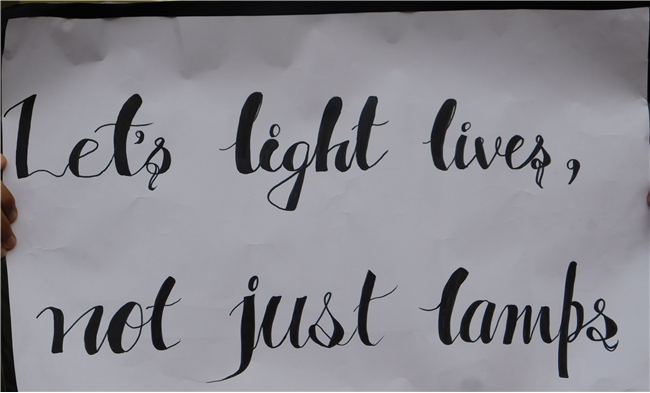 Let's light lives,
not just lamps